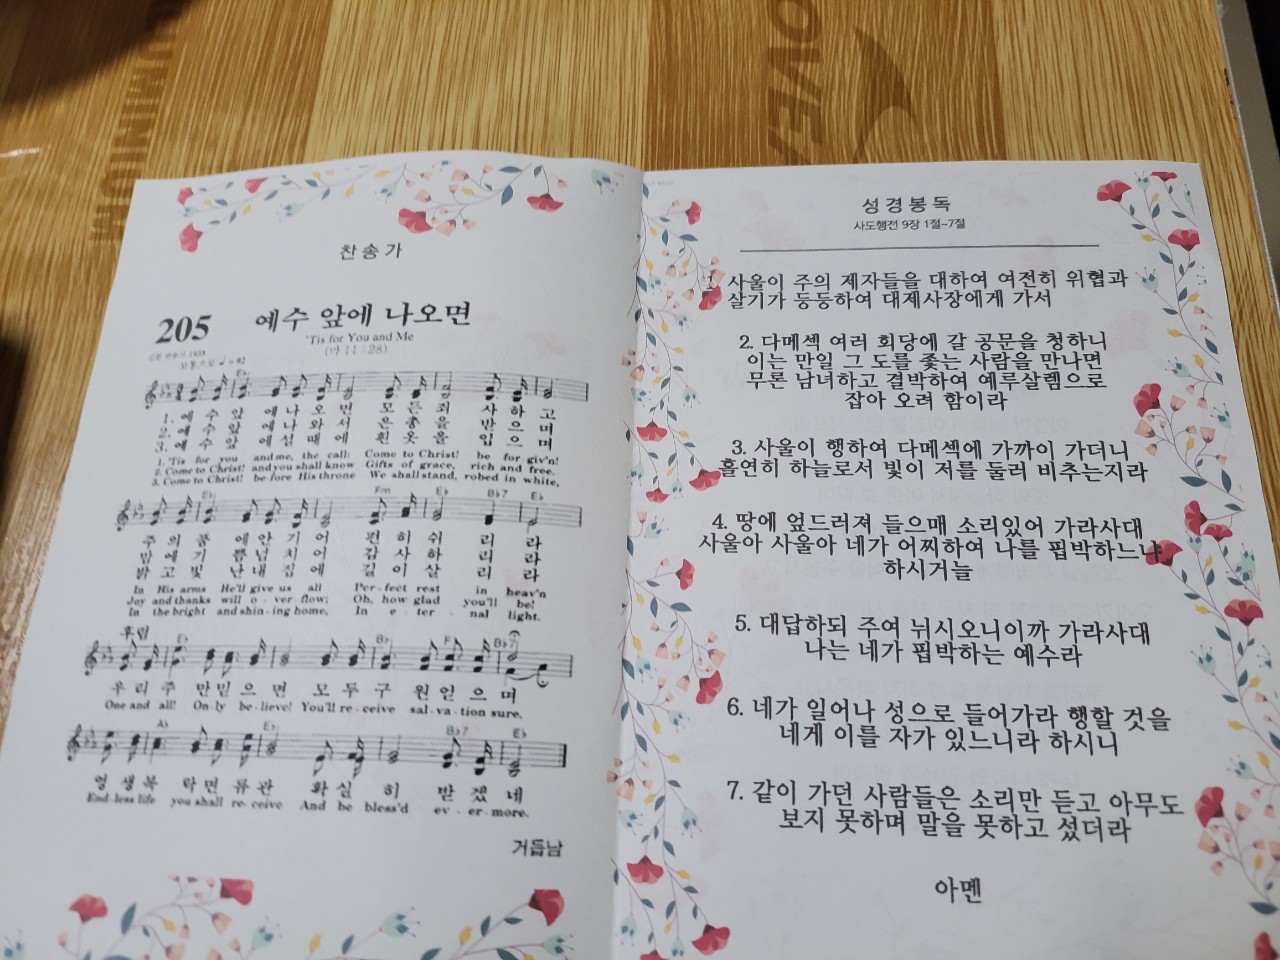 찬송가
205 예수 앞에 나오면
'Tis for You and Me
(마 11 : 28)
보통으로 ♩= 92
E♭
1. 예 수 앞 에 나 오 면 모 든 죄 사 하 고
2. 예 수 앞 에 나 와 서 은 총 을 받 으 며
3. 예 수 앞 에 설 때 에 흰 옷 을 입 으 며
1. 'Tis for you and me, the call: Come to Christ! be for giv'n!
2. Come to Christ! and you shall know Gifts of grace, rich and free,
3. Come to Christ! be-fore His throne We shall stand, robed in white,
E♭ Fm E♭ B♭7 E♭
주 의 품 에 안 기 어 편 히 쉬 리 라
맘 에 기 쁨 넘 치 어 감 사 하 리 라
밝 고 빛 난 내 집 에 길 이 살 리 라
In His arms He'll give us all Per-fect rest in heav'n
Joy and thanks will o-ver-flow; Oh, how glad you'll be!
In the bright and shin-ing home, In e-ter-nal light.
후렴 E♭ B♭ F B♭7
우 리 주 만 믿 으 면 모 두 구 원 얻 으 며
One and all! On-ly be-lieve! You'll re-ceive sal-va-tion sure,
A♭ E♭ B♭7 E♭
영 생 복 락 면 류 관 확 실 히 받 겠 네
End-less life you shall re-ceive And be bless'd ev-er-more.
거듭남
성경봉독
사도행전 9장 1절~7절
1. 사울이 주의 제자들을 대하여 여전히 위협과
살기가 등등하여 대제사장에게 가서
2. 다메섹 여러 회당에 갈 공문을 청하니
이는 만일 그 도를 좇는 사람을 만나면
무론 남녀하고 결박하여 예루살렘으로
잡아 오려 함이라
3. 사울이 행하여 다메섹에 가까이 가더니
홀연히 하늘로서 빛이 저를 둘러 비추는지라
4. 땅에 엎드러져 들으매 소리있어 가라사대
사울아 사울아 네가 어찌하여 나를 핍박하느냐
하시거늘
5. 대답하되 주여 뉘시오니이까 가라사대
나는 네가 핍박하는 예수라
6. 네가 일어나 성으로 들어가라 행할 것을
네게 이를 자가 있느니라 하시니
7. 같이 가던 사람들은 소리만 듣고 아무도
보지 못하며 말을 못하고 섰더라
아멘